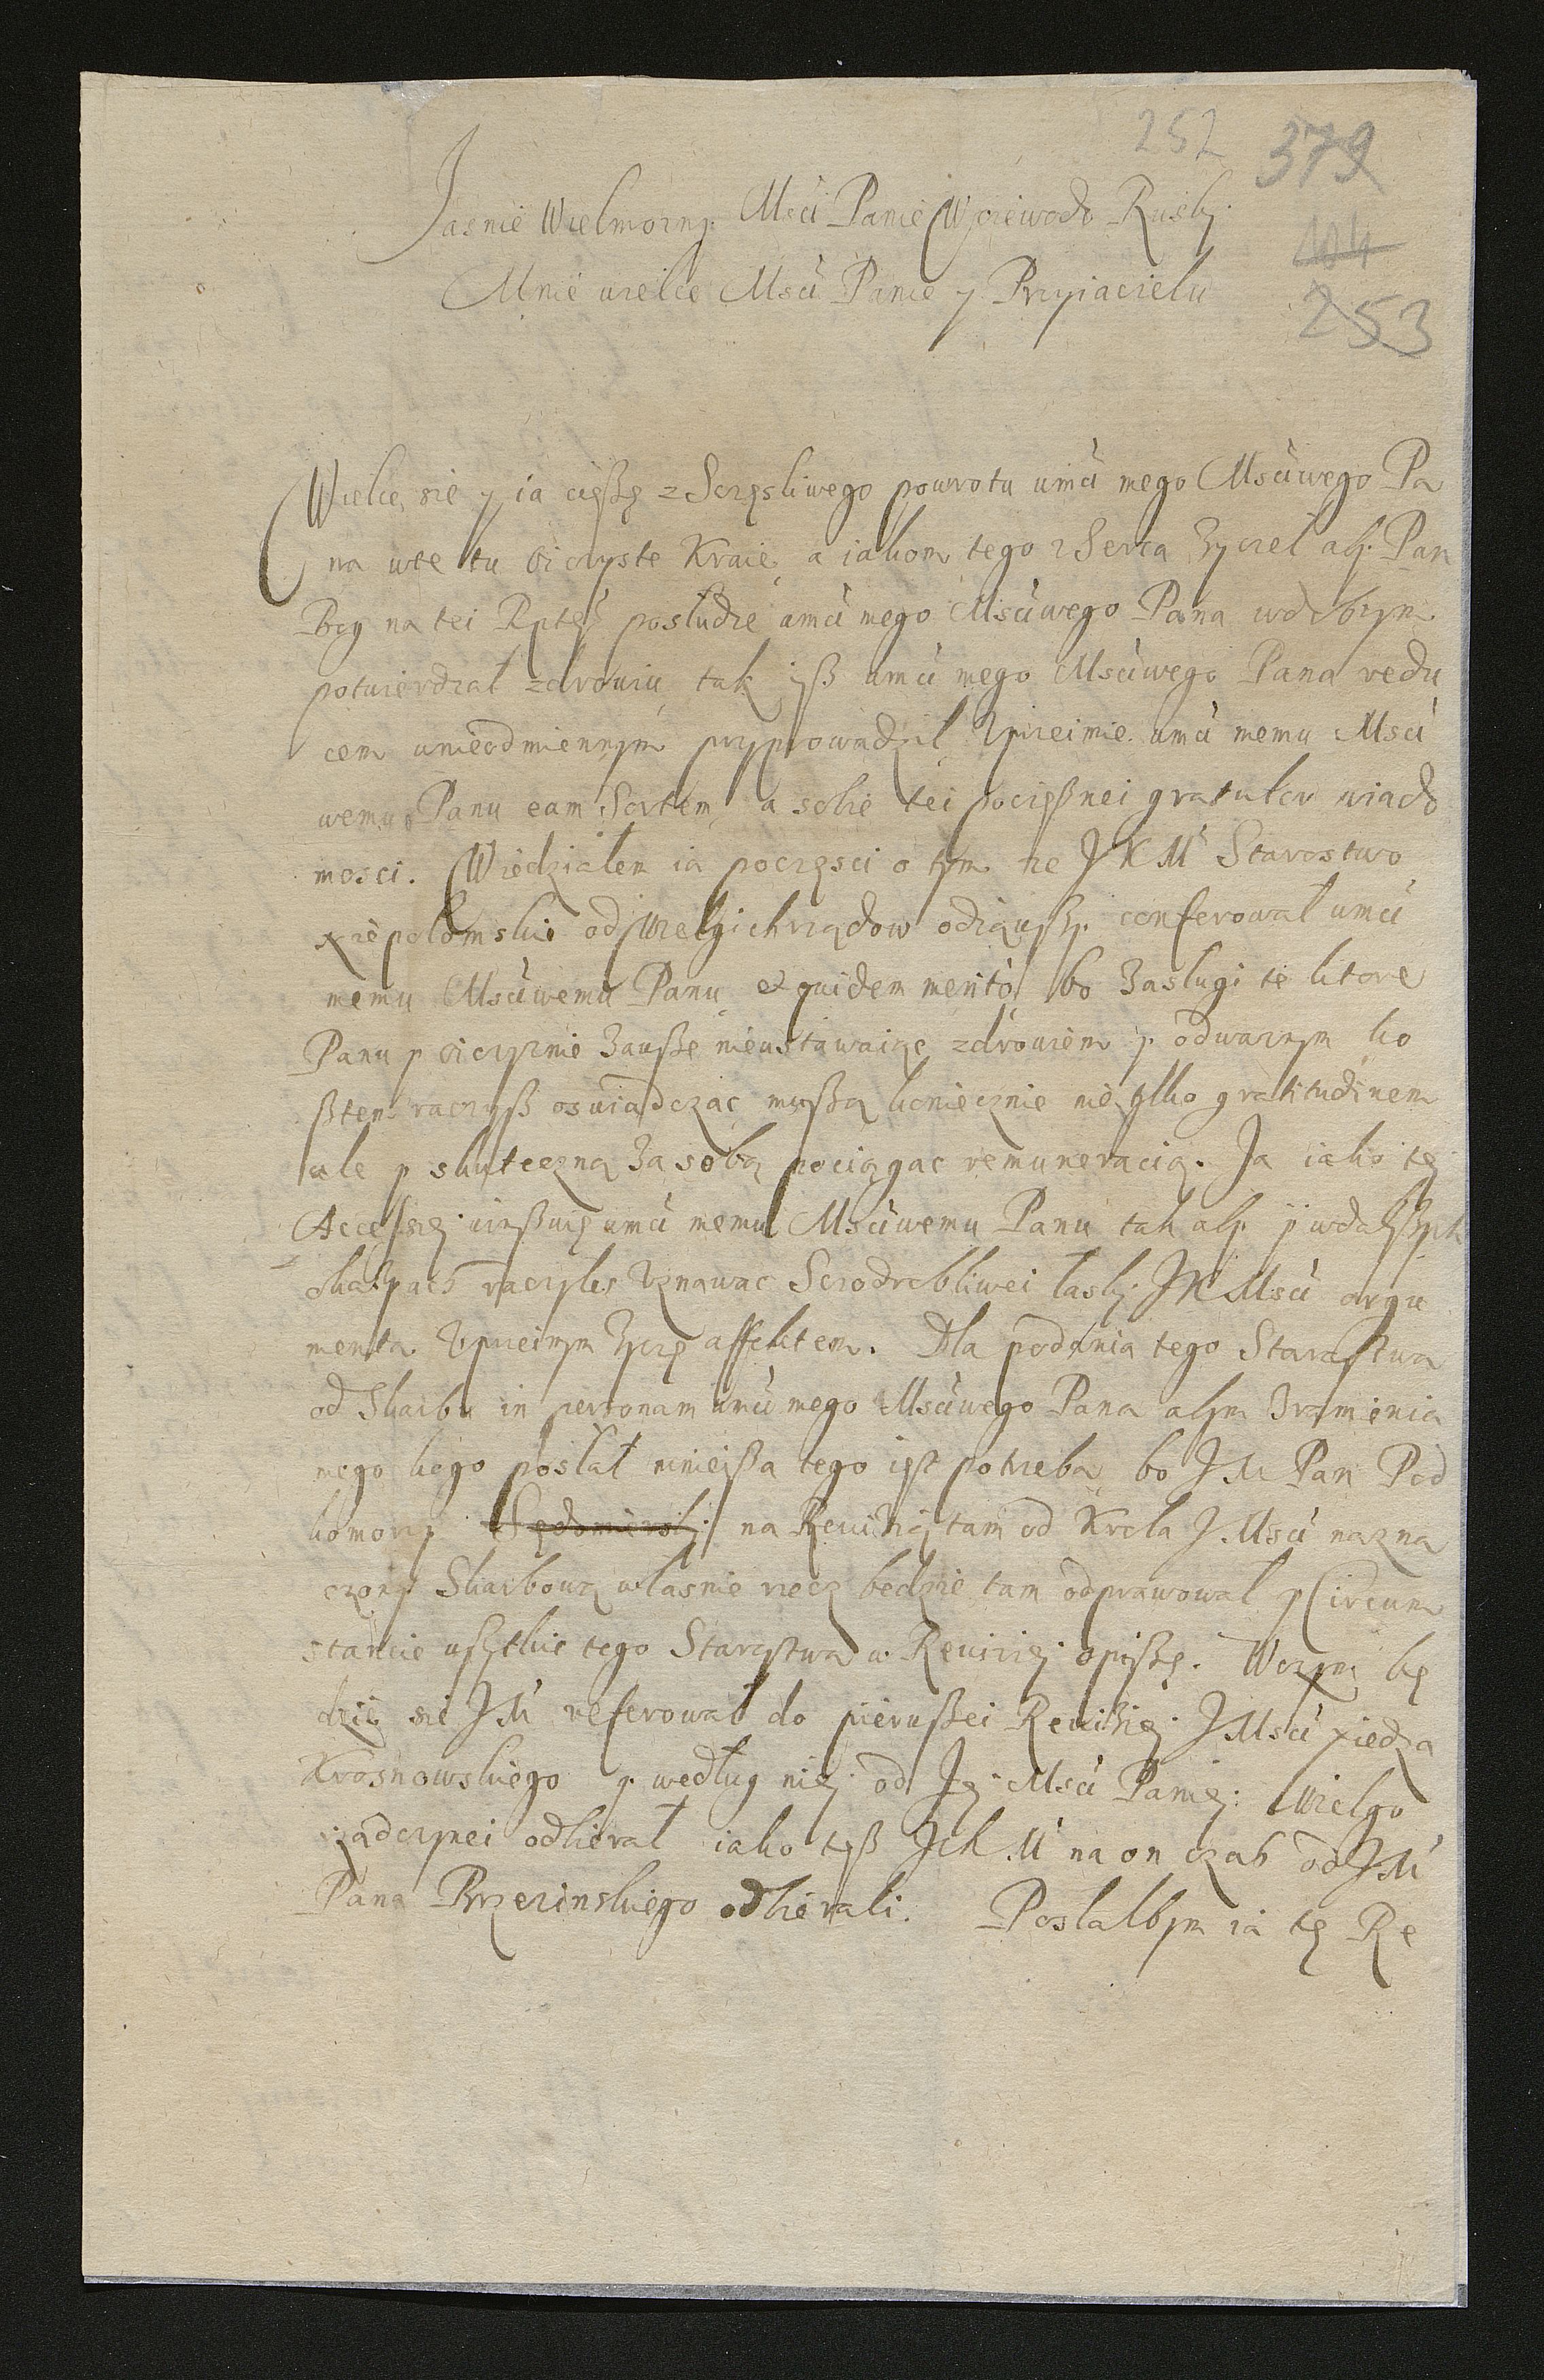 252 379
Jasnie Wielmozny Msci Panie Woiewodo Ruski
104
Mnie wielce Msci Panie y Przyiacielu
253
Wielce sie y ia cięszę z Sczęsliwego powrotu wmci mego Msciwego Pa
na w te tu oiczyste Kraie, a iakom tego z Serca zyczel aby Pan
Bog na tei Rptey posludze wmci mego Msciwego Pana w dobrym
potwierdzał zdrowiu, tak yż wmci mego Msciwego Pana redu
cem w nieodmiennym przyprowadził, Vprzeimie wmci memu Msci
wemu Panu eam Sortem, a sobie tei pocięsznei gratulor wiado
mosci. Wiedziałem ia poczęsci o tym ze J K M Starostwo
Niepolomskie od Wielgich rządow odiąwszy conferował wmci
memu Msciwemu Panu, et quidem merito, bo zasługi te ktore
Panu y oiczyznie zawsze nieustawaiąc zdrowiem y odwaznym ko
sztem raczysz oswiadczac muszą koniecznie nie tylko gratitudinem
ale y skuteczną za sobą pociągac remuneracią. Ja iako tey
Accessiey winszuię wmci memu Msciwemu Panu tak aby y w dalszych
okazyach raczyłes Vznawac Sczodrobliwei łaski J K Msci argu
menta Vprzeimym zyczę affektem. Dla podania tego Starostwa
od Skarbu in personam wmci mego Msciwego Pana abym z ramienia
mego kogo posłał mnieisza tego iest potrzeba, bo J M Pan Pod
komorzy Sędomirski na Rewizią tam od Krola J Msci nazna
czony Skarbową własnie rzecz bedzie tam odprawował y Circum
stancie wszytkie tego Starostwa w Rewiziey opisze. W czym bę
dzie sie J M referował do pierwszei Rewiziey J Msci xiedza
Krosnowskiego y według niey od Jey Msci Paniey Wielgo
rządczynei odbierał iako tesz Ich M na on czas od J M
Pana Brzezinskiego odbierali. Posłałbym ia tę Re